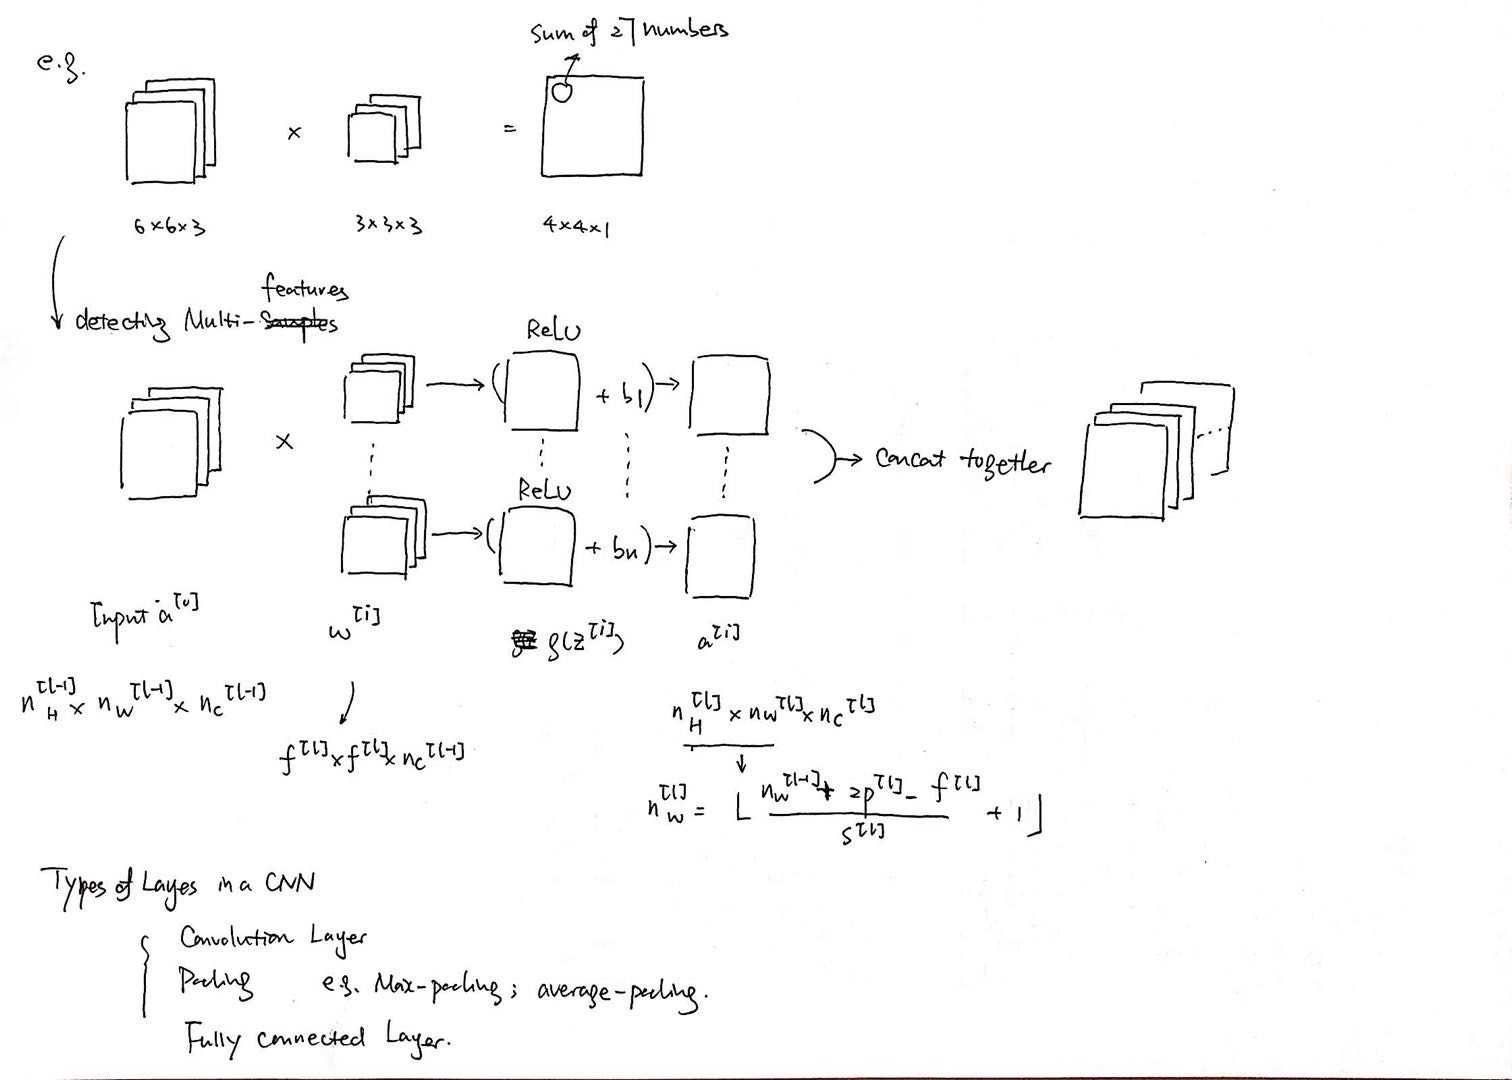 Sum of 27 numbers
e.g.
× =
6×6×3 3×3×3 4×4×1
features
detecting Multi-Samples
ReLU
( + b1) →
× → Concat together
ReLU
( + bn) →
Input a[0] w[i] g(z[i]) a[i]
n_H^[l-1] × n_W^[l-1] × n_C^[l-1]
f^[l] × f^[l] × n_C^[l-1]
n_H^[l] × n_W^[l] × n_C^[l]
n_W^[l] = ⌊ (n_W^[l-1] + 2p^[l] - f^[l]) / s^[l] + 1 ⌋
Types of Layes in a CNN
Convolution Layer
Pooling e.g. Max-pooling; average-pooling.
Fully connected Layer.